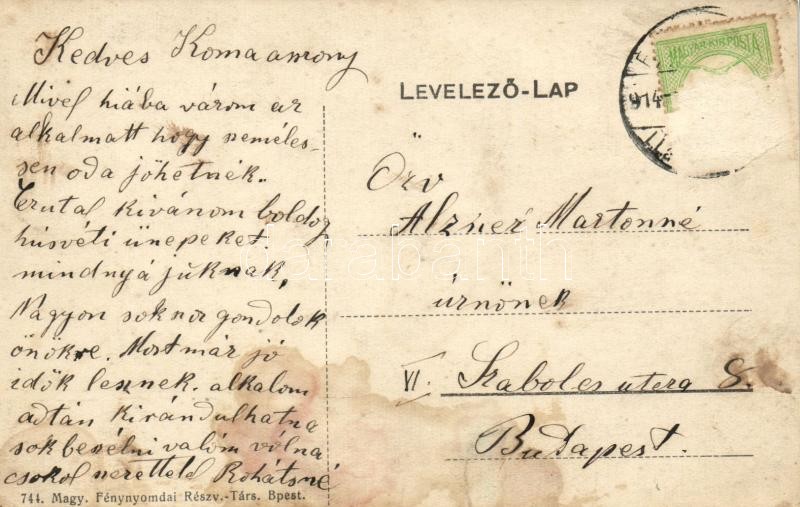 Kedves Komaamony
Mivel hiába várom az
alkalmatt hogy személes-
sen oda jöhetnék.
Ezutal kivánom boldog
húsvéti ünepeket.
mindnyá juknak,
Nagyon sokna gondolok
önökre. Most már jó
idők lesznek. alkalom
adtán kirándulhatna
sok beszélni valóm vólna
csokol szeretteld Rohátsné
744. Magy. Fénynyomdai Részv.-Társ. Bpest.
LEVELEZŐ-LAP
MAGYAR KIR. POSTA
914
Örv
Alzner Martonné
úrnőnek
VI. Szabolcs utcza 8.
Budapest.
darabanth